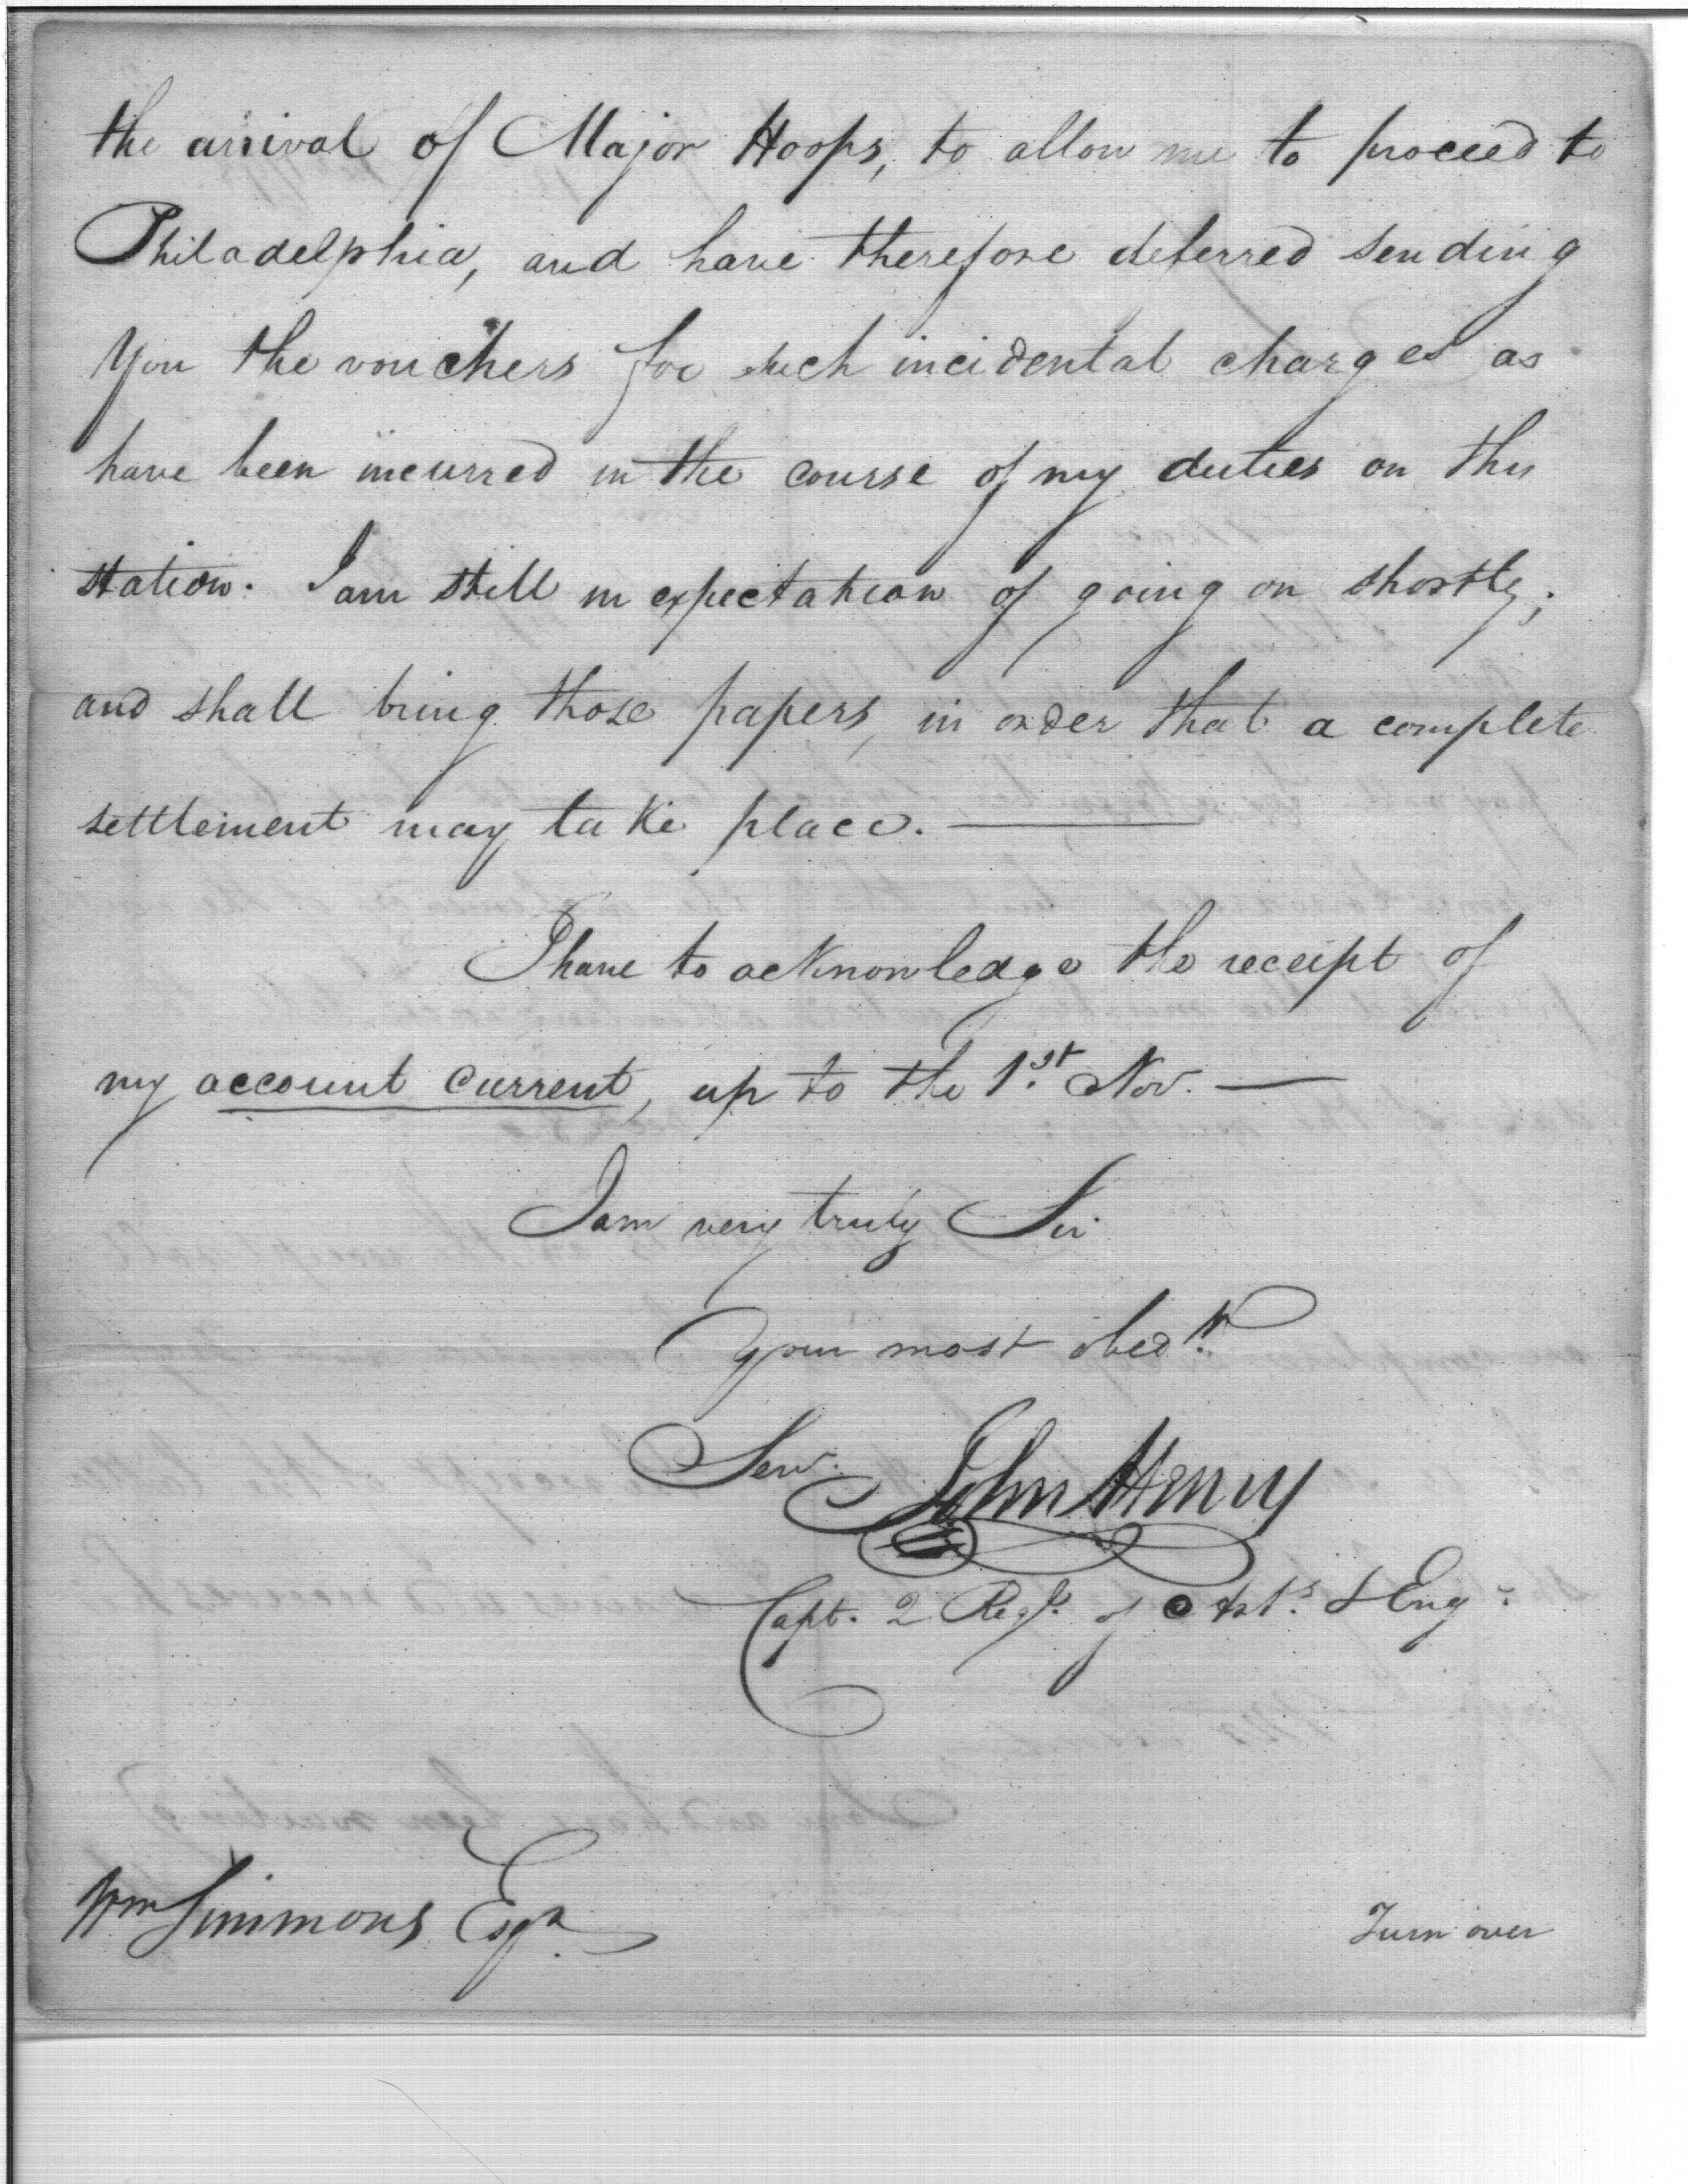 the arrival of Major Hoops, to allow me to proceed to
Philadelphia, and have therefore deferred sending
You the vouchers for such incidental charges as
have been incurred in the course of my duties on this
station. I am still in expectation of going on shortly;
and shall bring those papers, in order that a complete
settlement may take place. ———
I have to acknowledge the receipt of
my account current, up to the 1st. Nov. —
I am very truly Sir
Your most obedt.
Serv. John Henry
Capt. 2 Regt. of Arts. & Engs.
Wm Simmons Esqr.
Turn over